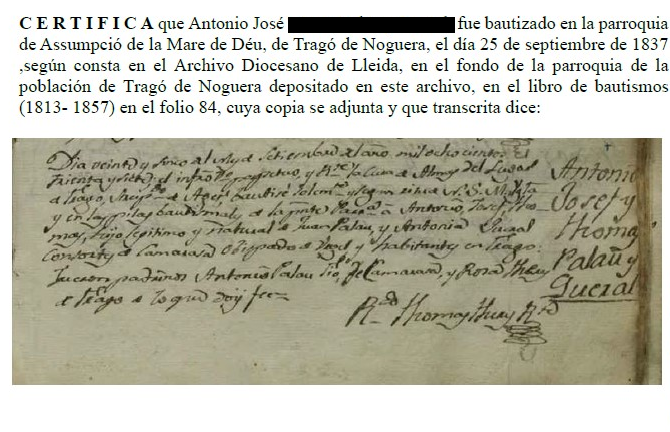 C E R T I F I C A que Antonio José fue bautizado en la parroquia
de Assumpció de la Mare de Déu, de Tragó de Noguera, el día 25 de septiembre de 1837
,según consta en el Archivo Diocesano de Lleida, en el fondo de la parroquia de la
población de Tragó de Noguera depositado en este archivo, en el libro de bautismos
(1813- 1857) en el folio 84, cuya copia se adjunta y que transcrita dice:
Dia veinte y sinco del mes de Setiembre del año mil ochocientos
trienta y siete: el infro y Rte la Cura de Almas del Lugar
de Trago, Bautisé Solemte segun ritual N. S. M. Igla
y en las pilas bautismales de la pnte a Antonio, Josef, Tho
mas, hijo legitimo y natural de Juan Palau, y Antonia Gueral
Consortes de Camarasa Obispado de Urgel y habitantes en Trago:
fueron padrinos Antonio Palau de Camarasa, y Rosa
de Trago de lo que doy fee
Rdo Thomas Rte
Antonio
Josef y
Thomas
Palau y
Gueral